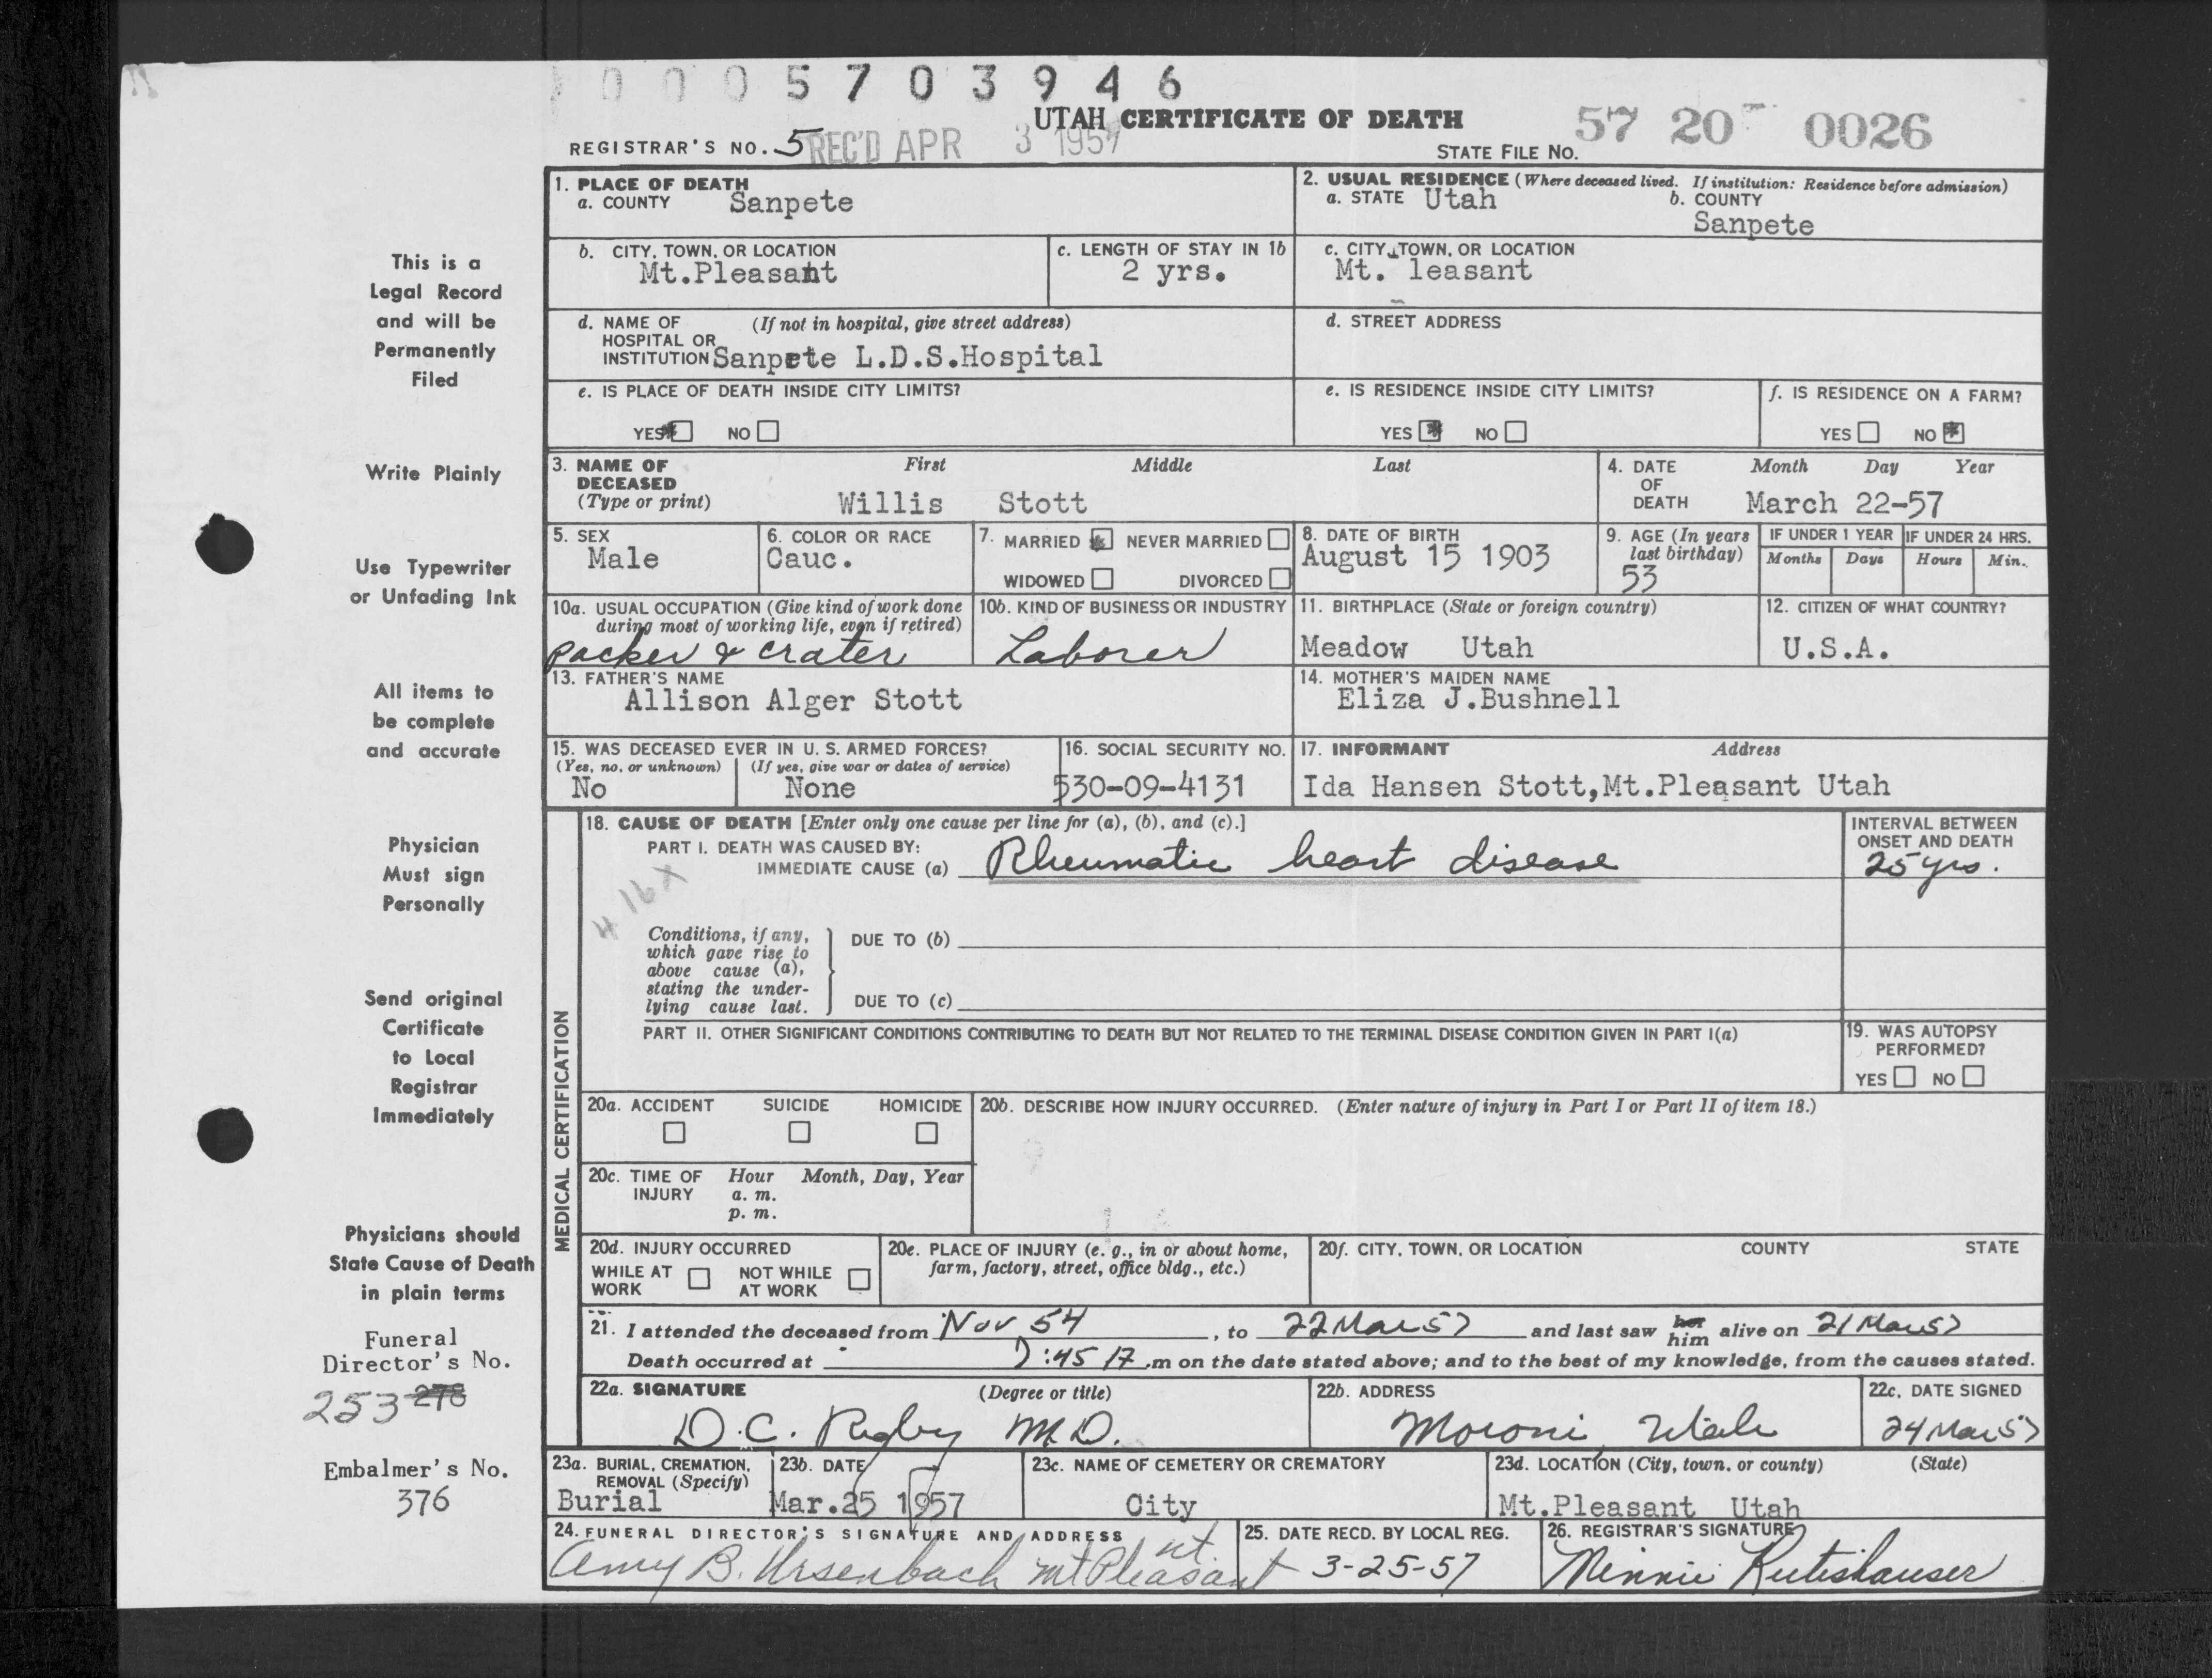 0005703946
UTAH CERTIFICATE OF DEATH
57 20 0026
REGISTRAR'S NO. 5 REC'D APR 3 1957
STATE FILE NO.
1. PLACE OF DEATH
a. COUNTY Sanpete
2. USUAL RESIDENCE (Where deceased lived. If institution: Residence before admission)
a. STATE Utah b. COUNTY
Sanpete
b. CITY, TOWN, OR LOCATION
Mt.Pleasant
c. LENGTH OF STAY IN 1b
2 yrs.
c. CITY, TOWN, OR LOCATION
Mt. leasant
d. NAME OF (If not in hospital, give street address)
HOSPITAL OR
INSTITUTION Sanpete L.D.S.Hospital
d. STREET ADDRESS
e. IS PLACE OF DEATH INSIDE CITY LIMITS?
YES NO
e. IS RESIDENCE INSIDE CITY LIMITS?
YES NO
f. IS RESIDENCE ON A FARM?
YES NO
3. NAME OF First Middle Last
DECEASED
(Type or print) Willis Stott
4. DATE Month Day Year
OF
DEATH March 22-57
5. SEX
Male
6. COLOR OR RACE
Cauc.
7. MARRIED NEVER MARRIED
WIDOWED DIVORCED
8. DATE OF BIRTH
August 15 1903
9. AGE (In years
last birthday)
53
IF UNDER 1 YEAR
Months Days
IF UNDER 24 HRS.
Hours Min.
10a. USUAL OCCUPATION (Give kind of work done
during most of working life, even if retired)
Packer & crater
10b. KIND OF BUSINESS OR INDUSTRY
Laborer
11. BIRTHPLACE (State or foreign country)
Meadow Utah
12. CITIZEN OF WHAT COUNTRY?
U.S.A.
13. FATHER'S NAME
Allison Alger Stott
14. MOTHER'S MAIDEN NAME
Eliza J.Bushnell
15. WAS DECEASED EVER IN U. S. ARMED FORCES?
(Yes, no, or unknown) (If yes, give war or dates of service)
No None
16. SOCIAL SECURITY NO.
530-09-4131
17. INFORMANT Address
Ida Hansen Stott,Mt.Pleasant Utah
MEDICAL CERTIFICATION
18. CAUSE OF DEATH [Enter only one cause per line for (a), (b), and (c).]
PART I. DEATH WAS CAUSED BY:
IMMEDIATE CAUSE (a) Rheumatic heart disease
INTERVAL BETWEEN
ONSET AND DEATH
25 yrs.
416X
Conditions, if any,
which gave rise to
above cause (a),
stating the under-
lying cause last.
DUE TO (b)
DUE TO (c)
PART II. OTHER SIGNIFICANT CONDITIONS CONTRIBUTING TO DEATH BUT NOT RELATED TO THE TERMINAL DISEASE CONDITION GIVEN IN PART I(a)
19. WAS AUTOPSY
PERFORMED?
YES NO
20a. ACCIDENT SUICIDE HOMICIDE
20b. DESCRIBE HOW INJURY OCCURRED. (Enter nature of injury in Part I or Part II of item 18.)
20c. TIME OF Hour Month, Day, Year
INJURY a. m.
p. m.
20d. INJURY OCCURRED
WHILE AT NOT WHILE
WORK AT WORK
20e. PLACE OF INJURY (e. g., in or about home,
farm, factory, street, office bldg., etc.)
20f. CITY, TOWN, OR LOCATION COUNTY STATE
21. I attended the deceased from Nov 54, to 22 Mar 57 and last saw her him alive on 21 Mar 57
Death occurred at 7:45 P.m on the date stated above; and to the best of my knowledge, from the causes stated.
22a. SIGNATURE (Degree or title)
D.C. Rigby M.D.
22b. ADDRESS
Moroni Utah
22c. DATE SIGNED
24 Mar 57
23a. BURIAL, CREMATION,
REMOVAL (Specify)
Burial
23b. DATE
Mar.25 1957
23c. NAME OF CEMETERY OR CREMATORY
City
23d. LOCATION (City, town, or county) (State)
Mt.Pleasant Utah
24. FUNERAL DIRECTOR'S SIGNATURE AND ADDRESS
Amy B. Ursenbach Mt Pleasant ut.
25. DATE RECD. BY LOCAL REG.
3-25-57
26. REGISTRAR'S SIGNATURE
Minnie Rutishauser
This is a
Legal Record
and will be
Permanently
Filed
Write Plainly
Use Typewriter
or Unfading Ink
All items to
be complete
and accurate
Physician
Must sign
Personally
Send original
Certificate
to Local
Registrar
Immediately
Physicians should
State Cause of Death
in plain terms
Funeral
Director's No.
253 278
Embalmer's No.
376